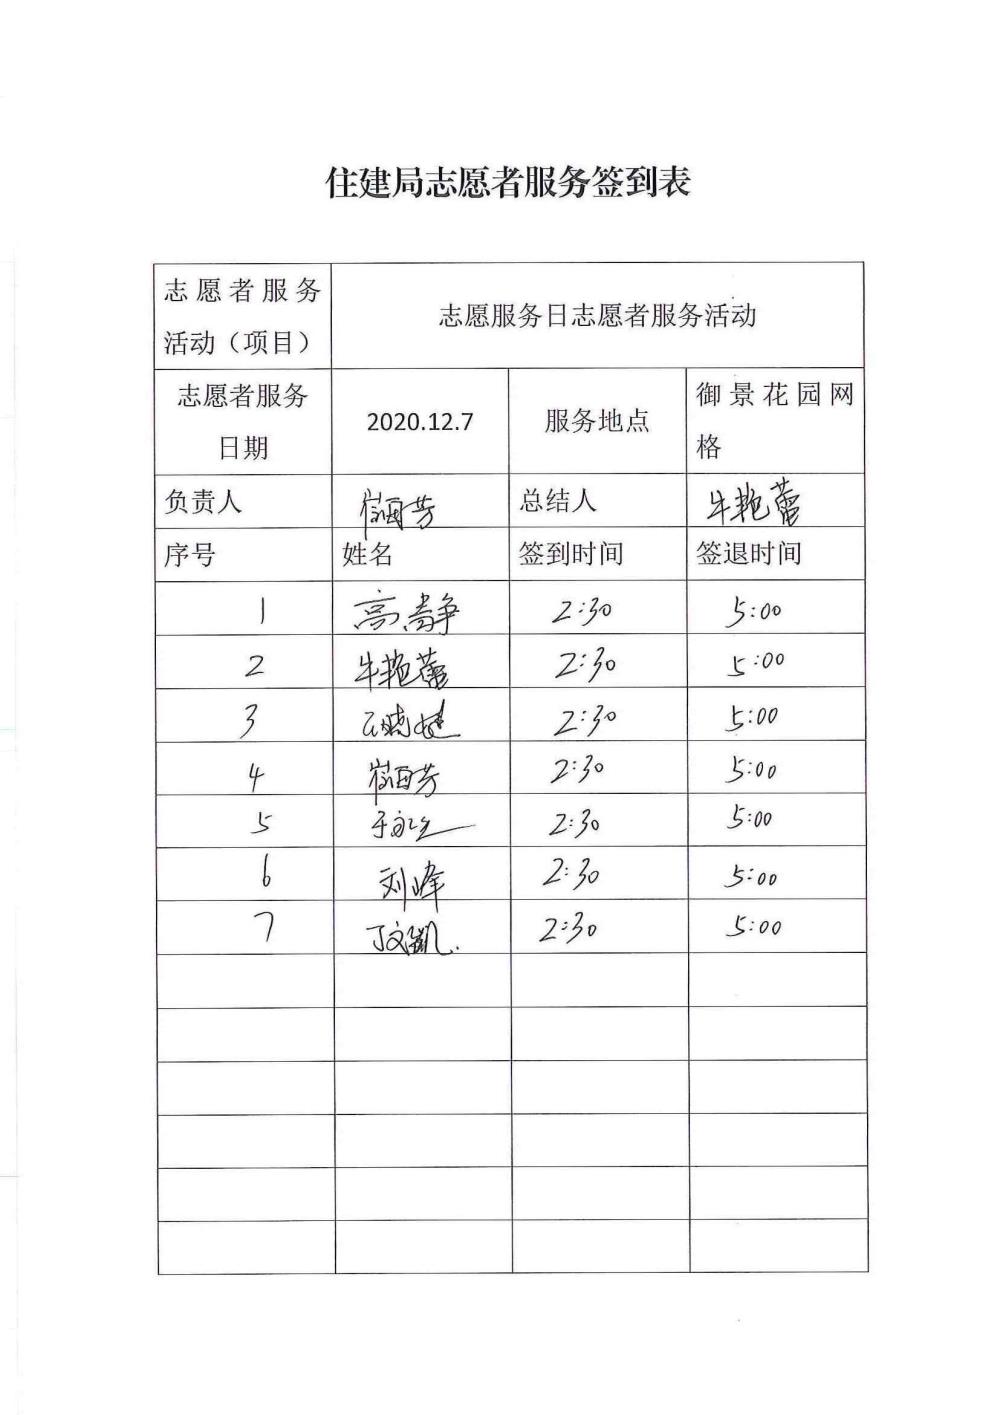 住建局志愿者服务签到表
志愿者服务
活动（项目）
志愿服务日志愿者服务活动
志愿者服务
日期
2020.12.7
服务地点
御景花园网
格
负责人
总结人
牛艳蕾
序号 姓名 签到时间 签退时间
1 高静 2:30 5:00
2 牛艳蕾 2:30 5:00
3 2:30 5:00
4 2:30 5:00
5 2:30 5:00
6 刘峰 2:30 5:00
7 丁文凯 2:30 5:00